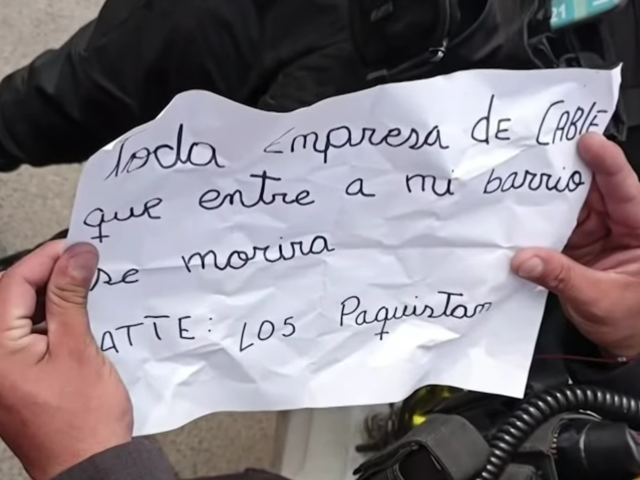 21
Toda Empresa dE CABlE
que entre a mi barrio
se morira
ATTE: LOS Paquistan